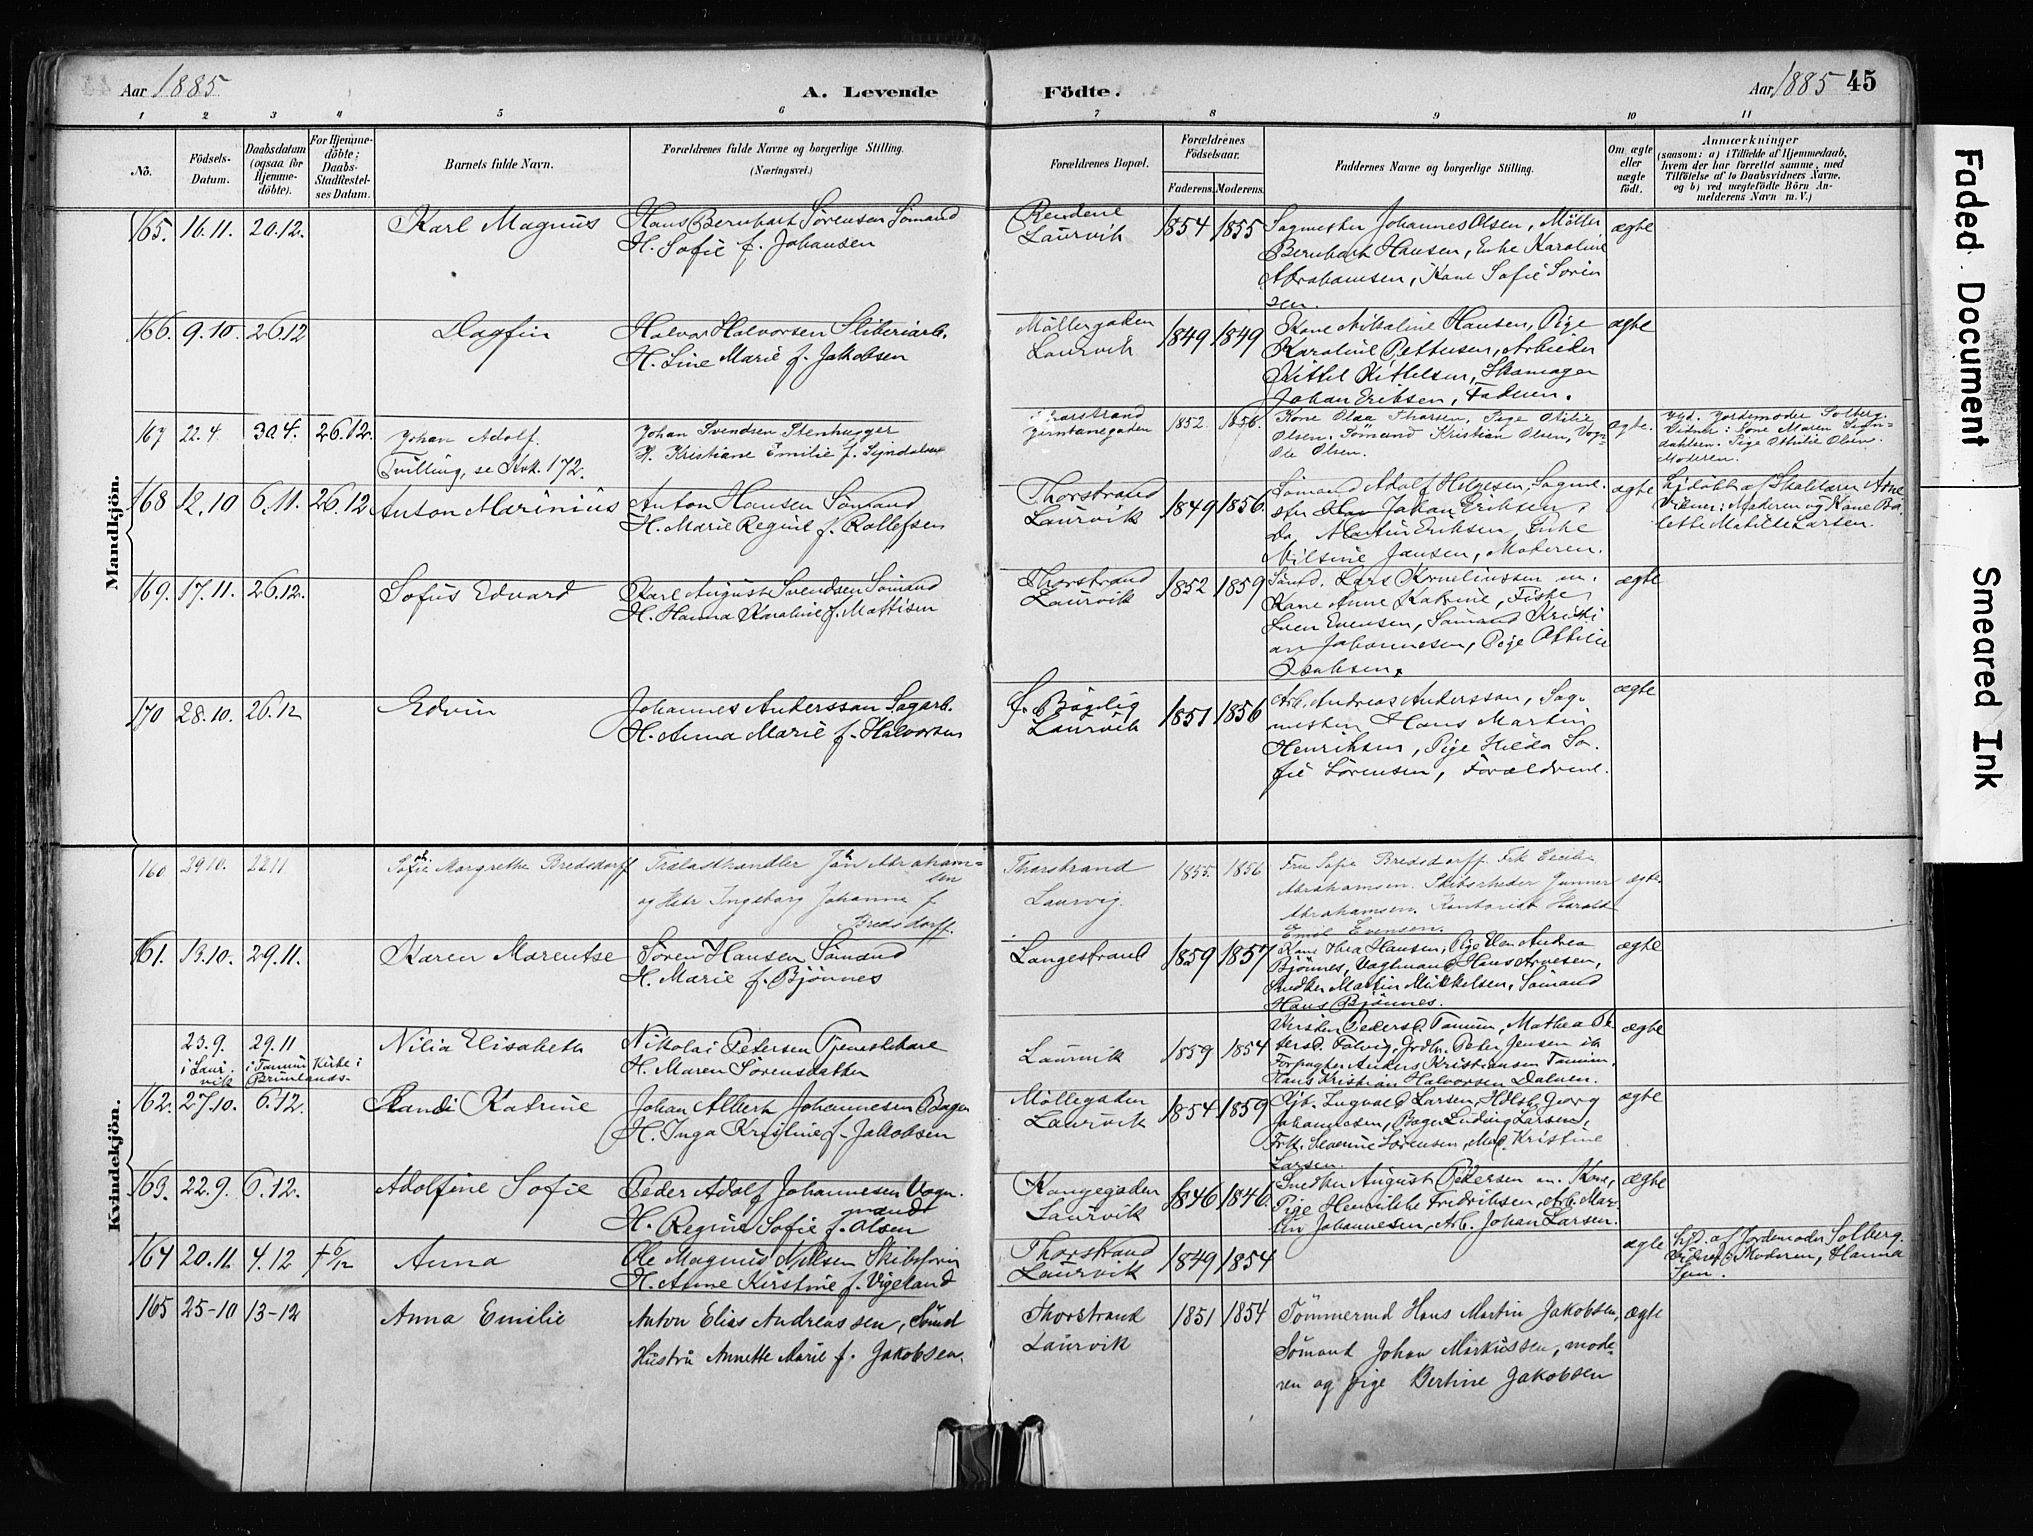 Aar 1885
A. Levende
Födte.
Aar 1885 45
1 2 3 4 5 6 7 8 9 10 11
No.
Födsels-Datum.
Daabsdatum (ogsaa for Hjemmedöbte).
For Hjemmedöbte; Daabs-Stadfæstelses Datum.
Barnets fulde Navn.
Forældrenes fulde Navne og borgerlige Stilling.
(Næringsvei.)
Forældrenes Bopæl.
Forældrenes Födselsaar.
Faderens. Moderens.
Faddernes Navne og borgerlige Stilling.
Om ægte eller uægte födt.
Anmærkninger
(saasom: a) i Tilfælde af Hjemmedaab, hvem der har forrettet samme, med Tilföielse af to Daabsvidners Navne. og b) ved uægtefödte Börn Anmelderens Navn m. V.)
Mandkjön.
165. 16.11. 20.12. Karl Magnus
Hans Bernhart Sörensen Sömand
H. Sofie f. Johansen
Laurvik
1854 1855
Sagmester Johannes Olsen, Möller
Bernhart Hansen, Enke Karoline
Abrahamsen, Kone Sofie Sören
sen.
ægte
166. 9.10. 26.12 Dagfin
Halvor Halvorsen Sliberiarb.
H. Line Marie f. Jakobsen
Möllergaden
Laurvik
1849 1849
Kone Hansen, Pige
Karoline Pettersen, Arbeider
Kittel Kittelsen, Skomager
Johan Eriksen, Faderen.
ægte
167 22.4. 30.4. 26.12. Johan Adolf.
Tvilling, se Kvk. 172.
Johan Svendsen Stenhugger
H. Kristiane Emilie f.
Jerntanegaden
1852. 1856.
Kone Olaa Thorsen, Pige Otilie
Olsen, Sömand Kristian Olsen,
Ole Olsen.
ægte.
Hjd. Jordemoder Solberg.
Vidner: Kone Maren
Pige Othilie Olsen
Moderen.
168 12.10 6.11. 26.12 Anton Marinius
Anton Hansen Sömand
H. Marie Regine f. Rollefsen
Thorstrand
Laurvik
1849 1856.
Sömand Adolf Helgesen, Sagme-
ster Johan Eriksen,
do Martin Eriksen, Enke
Nilsine Jansen, Moderen.
ægte
hjdöbt af Skolelærer Arne
Vidner: Moderen og Kone
Matilte Larsen.
169. 17.11. 26.12. Sofus Edvard
Karl August Svendsen Sömand
H. Hanna Karoline f. Mattisen
Thorstrand
Laurvik
1852 1859
Sömd. Lars Kornelinssen m.
Kone Anne Katrine, Fisker
Sven Evensen, Sömand Kristi
an Johannesen, Pige Attilie
Isaksen.
ægte
170 28.10. 26.12 Edvin
Johannes Anderssan Sagarb.
H. Anna Marie f. Halvorsen
f. Bögelig
Laurvik
1851 1856
Arb. Andreas Anderssan, Sag-
mester Hans Martin
Henriksen, Pige Hilda So-
fie Sörensen, Forældrene.
ægte
Kvindekjön.
160 29.10. 22.11 Sofie Margrethe Bredsdorff
Trælasthandler Abraham-
sen
og Hstr Ingeborg Johanne f
Bredsdorff.
Thorstrand
Laurvig.
1855. 1856
Fru Sofie Bredsdorff. Frk Cecilie
Abrahamsen. Skibsrheder Gunner
Abrahamsen. Kontorist Harald
Emil Evensen.
ægte.
161. 13.10. 29.11. Karen Marentse
Sören Hansen Sömand
H. Marie f. Bjönnes
Langestrand
1859 1857
Kone Thea Hansen, Pige Elen Andrea
Bjönnes, Vagtmand Hans Arvesen,
Snedker Martin Mikkelsen, Sömand
Hans Bjönnes.
ægte
23.9. i Laurvik
29.11 i Tanum Kirke i Brunlands-
Nilia Elisabeth
Nikolai Petersen Tjenestekare
H. Maren Sörensdatter
Laurvik
1859 1854
Kirsten Pedersd. Tanum, Mathea Pe
tersd. Falvig, Grdbr. Peter Jensen ib
Forpagter Anders Kristiansen Tanum,
Hans Kristian Halvorsen Dalnen.
ægte
162. 27.10. 6.12. Randi Katrine
Johan Albert Johannesen Bager
H. Inga Kristine f. Jakobsen
Möllegaden
Laurvik
1854 1859
Ingvald Larsen, Georg
Johannesen, Bager Ludvig Larsen,
Frk. Severine Sörensen, Mad. Kristine
Larsen.
ægte
163. 22.9. 6.12. Adolfine Sofie
Peder Adolf Johannesen Vogn-
mand
H. Regine Sofie f. Olsen
Kongegaden
Laurvik
1846 1846.
Snedker August Pedersen m. Kone,
Pige Henrikke Fridriksen, Arb. Mar-
tin Johannesen, Arb. Johan Larsen.
ægte
164 20.11. 4.12 † 6/12 Anna
Ole Magnus Nilsen
H. Anne Kirstine f. Vigeland
Thorstrand
Laurvik
1849 1854
ægte
hjd. af Jordemoder Solberg.
Vidner: Moderen, Hanna
165 25-10 13-12 Anna Emilie
Anton Elias Andreassen, Sömd
Hustru Annette Marie f. Jakobsen.
Thorstrand
Laurvik
1851 1854
Tömmermd Hans Martin Jakobsen,
Sömand Johan Markussen, mode-
ren og pige Bertine Jakobsen
ægte
Faded Document
Smeared Ink